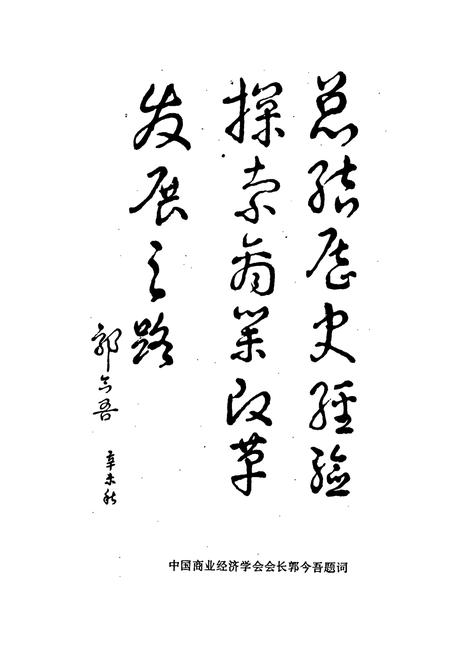 总结历史经验
探索商业改革
发展之路
郭今吾
辛未秋
中国商业经济学会会长郭今吾题词